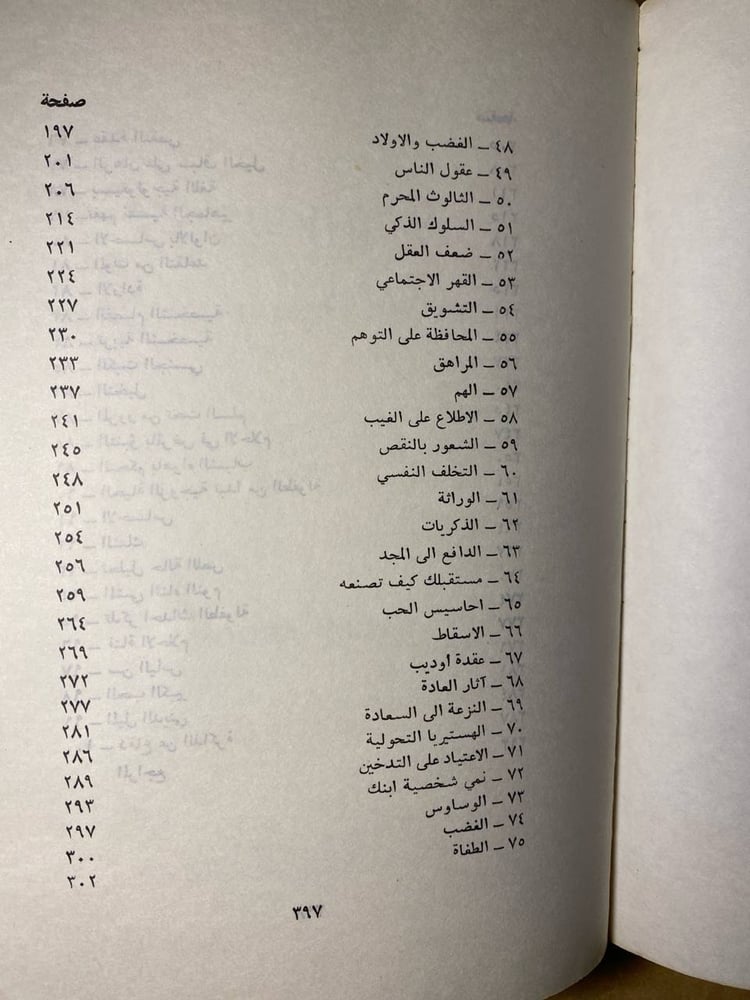 صفحة
٤٨ ـ الغضب والاولاد ١٩٧
٤٩ ـ عقول الناس ٢٠١
٥٠ ـ الثالوث المحرم ٢٠٦
٥١ ـ السلوك الذكي ٢١٤
٥٢ ـ ضعف العقل ٢٢١
٥٣ ـ القهر الاجتماعي ٢٢٤
٥٤ ـ التشويق ٢٢٧
٥٥ ـ المحافظة على التوهم ٢٣٠
٥٦ ـ المراهق ٢٣٣
٥٧ ـ الهم ٢٣٧
٥٨ ـ الاطلاع على الغيب ٢٤١
٥٩ ـ الشعور بالنقص ٢٤٥
٦٠ ـ التخلف النفسي ٢٤٨
٦١ ـ الوراثة ٢٥١
٦٢ ـ الذكريات ٢٥٤
٦٣ ـ الدافع الى المجد ٢٥٦
٦٤ ـ مستقبلك كيف تصنعه ٢٥٩
٦٥ ـ احاسيس الحب ٢٦٤
٦٦ ـ الاسقاط ٢٦٩
٦٧ ـ عقدة أوديب ٢٧٢
٦٨ ـ آثار العادة ٢٧٧
٦٩ ـ النزعة الى السعادة ٢٨١
٧٠ ـ الهستيريا التحولية ٢٨٦
٧١ ـ الاعتياد على التدخين ٢٨٩
٧٢ ـ نمي شخصية ابنك ٢٩٣
٧٣ ـ الوساوس ٢٩٧
٧٤ ـ الغضب ٣٠٠
٧٥ ـ الطغاة ٣٠٢
٣٩٧